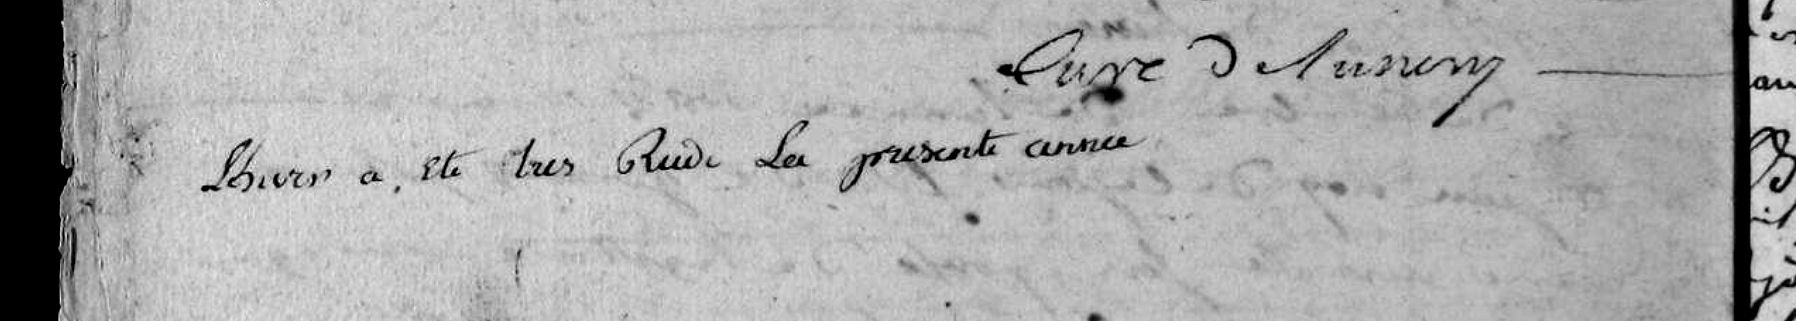 Curé d
Lhivers a Eté tres Rude La presente année